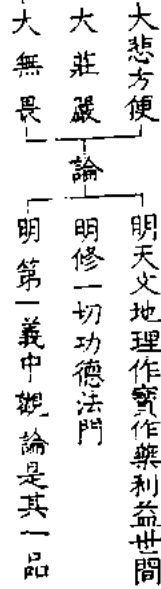 大悲方便
大莊嚴
大無畏
論
明天文地理作寶作藥利益世間
明修一切功德法門
明第一義中觀論是其一品